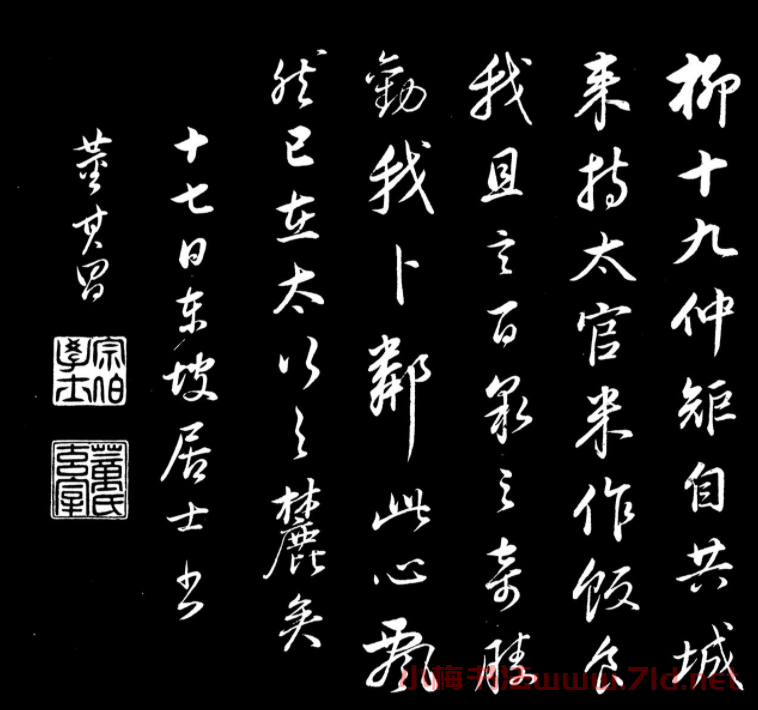 柳十九仲矩自共城
来持太官米作飯食
我且言百泉之奇勝
勸我卜鄰此心飄
然已在太行之麓矣
十七日東坡居士書
董其昌
宗伯學士
董氏玄宰
小梅书法www.7ld.net